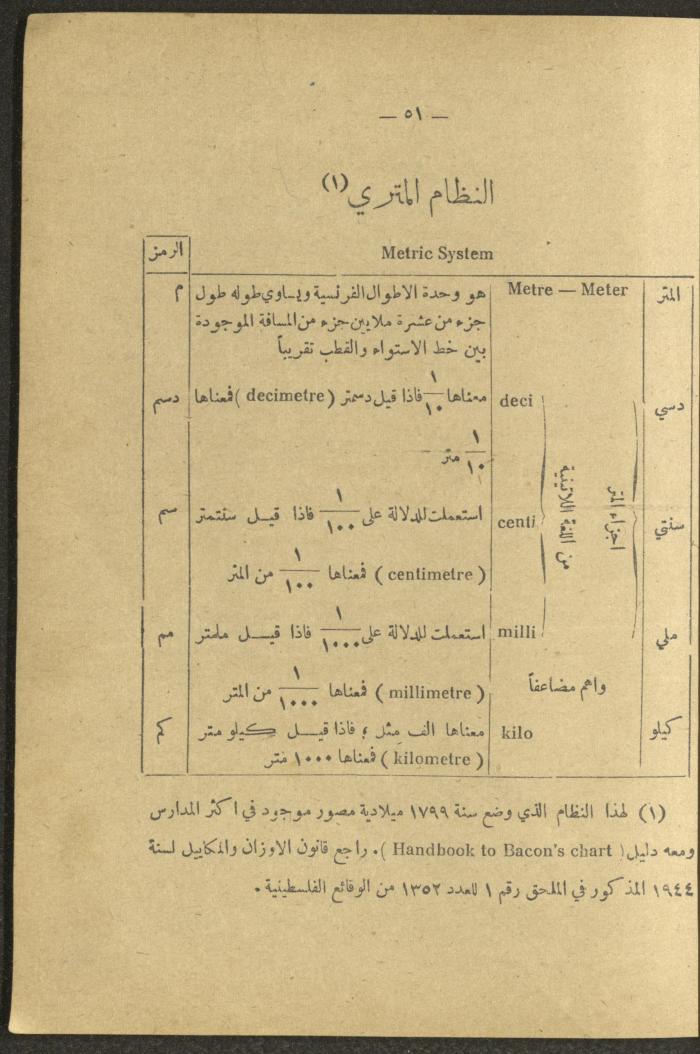 — ٥١ —
النظام المتري (١)
Metric System
الرمز
المتر
Metre — Meter
هو وحدة الاطوال الفرنسية ويساوي طوله طول
جزء من عشرة ملايين جزء من المسافة الموجودة
بين خط الاستواء والقطب تقريباً
م
اجزاء المتر
من اللغة اللاتينية
دسي
deci
معناها ١/١٠ فاذا قيل دسمتر (decimetre) فمعناها
١/١٠ متر
دسم
سنتي
centi
استعملت للدلالة على ١/١٠٠ فاذا قيل سنتمتر
(centimetre) فمعناها ١/١٠٠ من المتر
سم
ملي
milli
استعملت للدلالة على ١/١٠٠٠ فاذا قيل ملمتر
(millimetre) فمعناها ١/١٠٠٠ من المتر
مم
واهم مضاعفاً
كيلو
kilo
معناها الف مثل ؛ فاذا قيل كيلو متر
(kilometre) فمعناها ١٠٠٠ متر
كم
(١) لهذا النظام الذي وضع سنة ١٧٩٩ ميلادية مصور موجود في اكثر المدارس
ومعه دليل (Handbook to Bacon's chart). راجع قانون الاوزان والمكاييل لسنة
١٩٤٤ المذكور في الملحق رقم ١ للعدد ١٣٥٢ من الوقائع الفلسطينية .